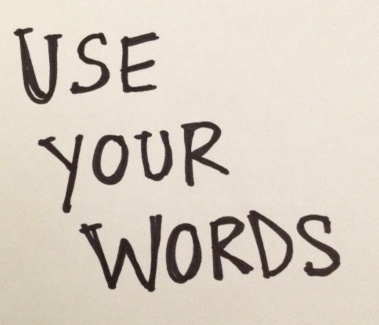 USE
YOUR
WORDS